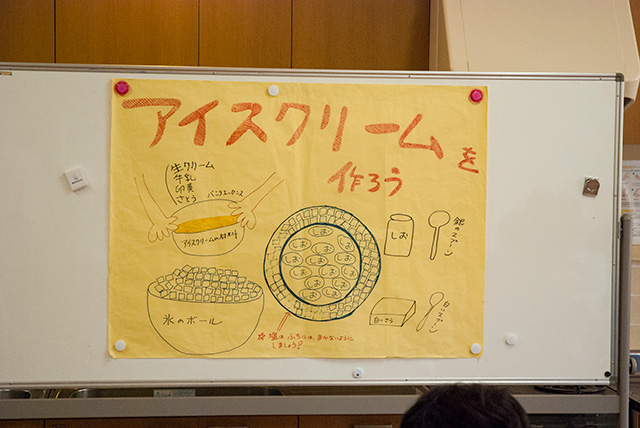 アイスクリームを
作ろう
生クリーム
牛乳
卵黄
さとう
バニラエッセンス
アイスクリームの材料
氷のボール
しお
しお
しお
しお
しお
しお
しお
しお
しお
しお
しお
しお
しお
しお
銀のスプーン
白いさとう
白いスプーン
☆塩は、ふちには、まかないように
しましょう!